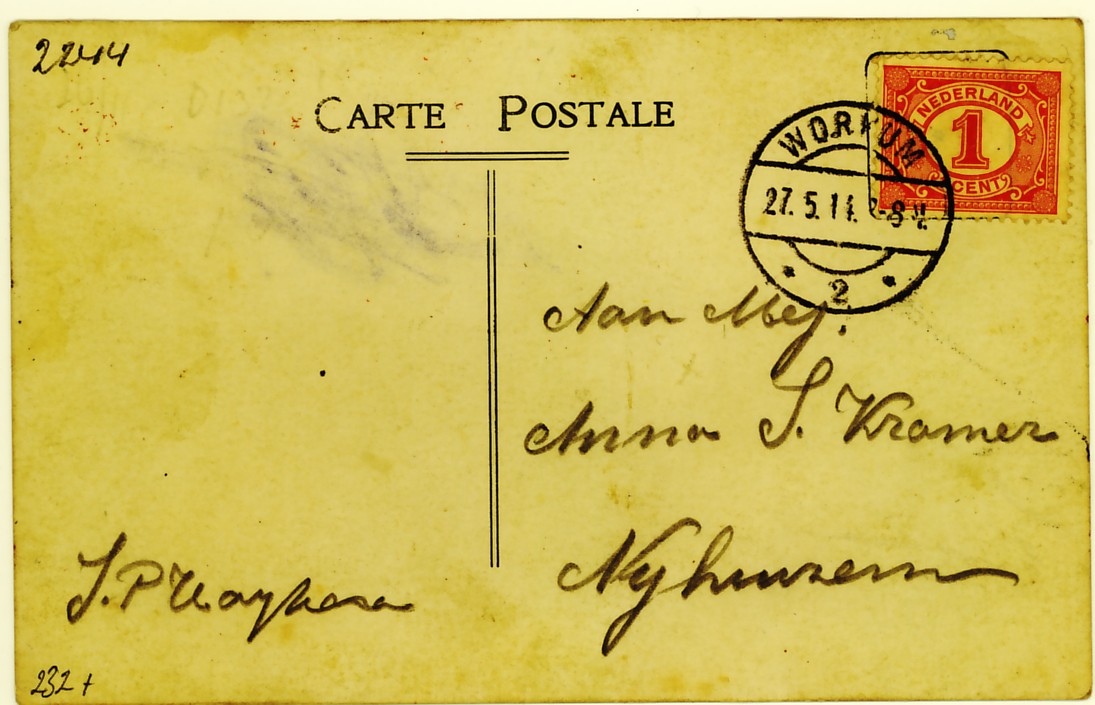 2244
CARTE POSTALE
NEDERLAND
1
CENT
WORKUM
27.5.14. -8 V.
2
Aan Mej.
Anna S. Kramer
Nyhuizem
S. P
232 +